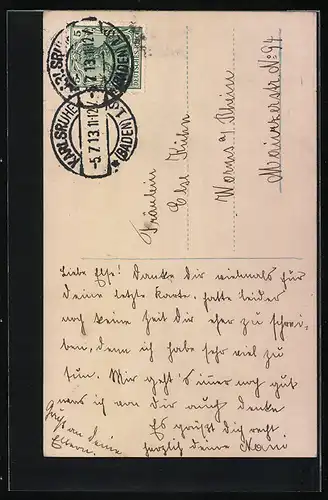 KARLSRUHE (BADEN) 1.
-5.7.13.11-12V.
Fräulein
Else Kühn
Worms a/ Rhein
Mainzerstr. No 94
Liebe Else! Danke dir vielmals für
deine letzte Karte, hatte leider
noch keine Zeit dir eher zu schrei-
ben, denn ich habe sehr viel zu
tun. Mir geht's immer noch gut
was ich von dir auch denke
Es grüßt dich recht
herzlich deine Nani
Gruß an deine
Eltern.